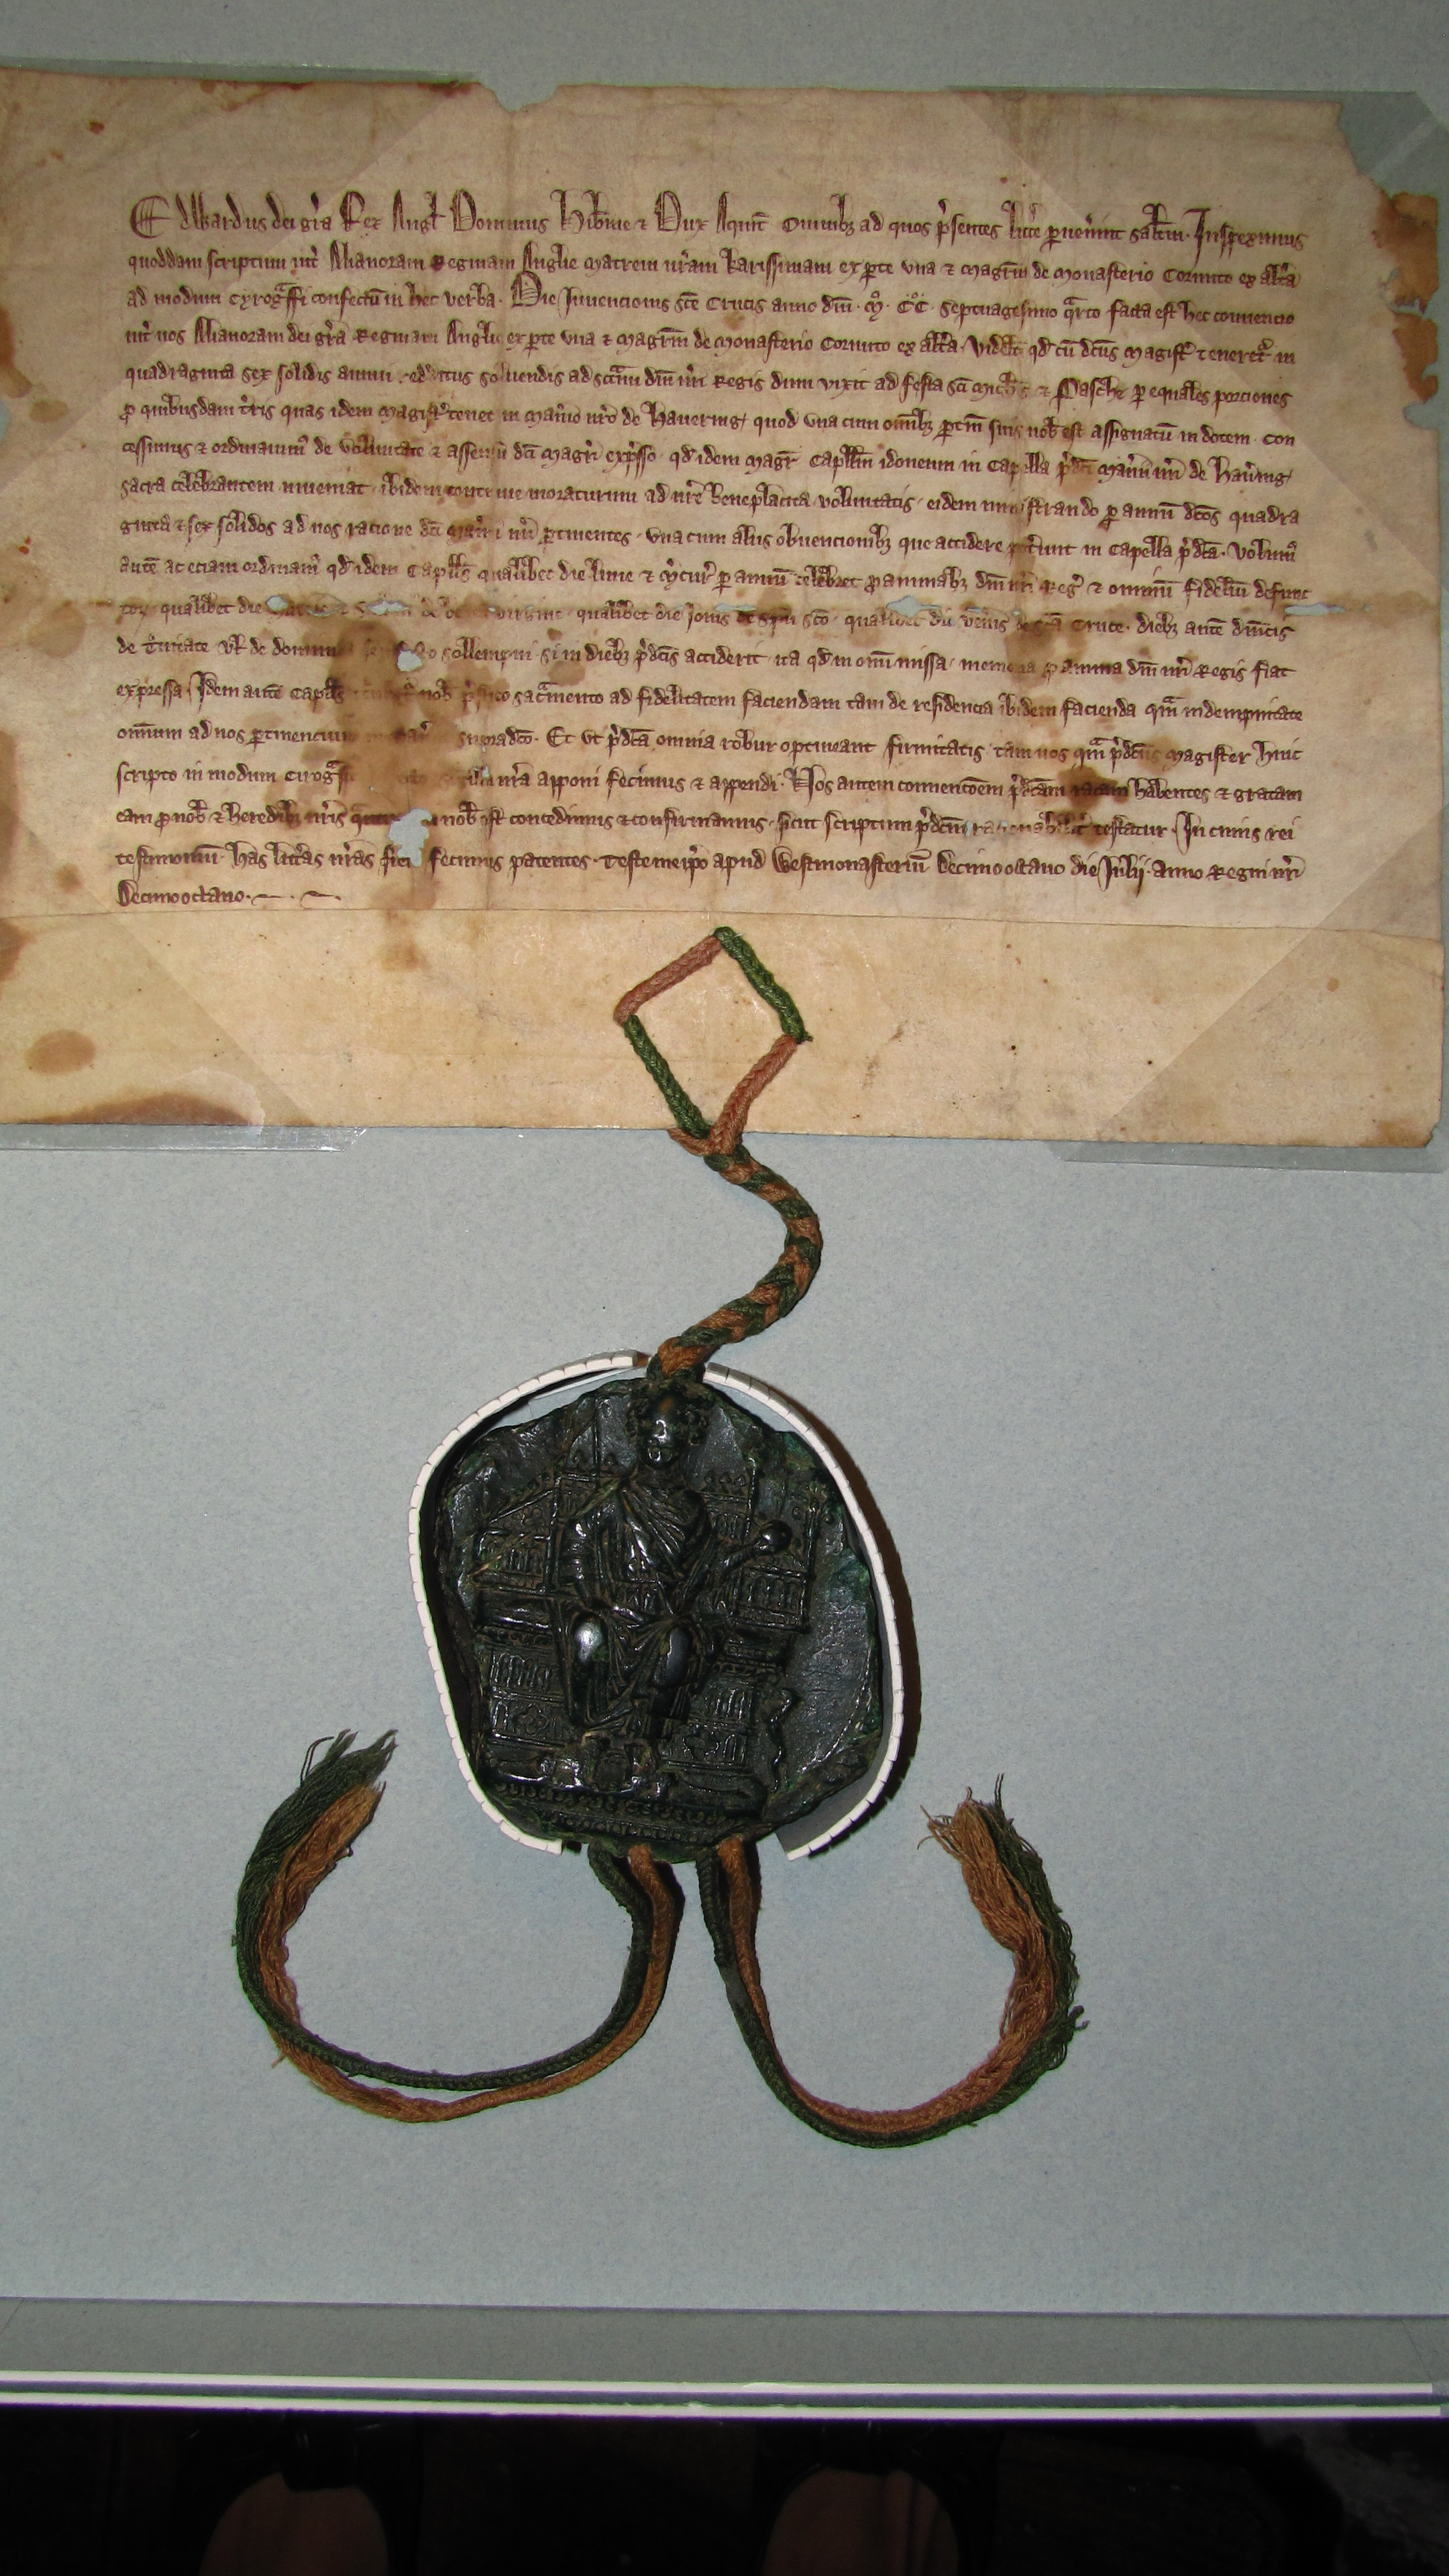 Edwardus dei gr̃a Rex Angl Dominus Hib̃nie & Dux Aquit̃ Omnibꝫ ad quos p̃sentes litt̃e puen̾int salt̃m. Inspeximus
quoddam scriptum int̾ Alianoram Reginam Anglie matrem nr̃am karissimam ex pte una & Magr̃m de Monasterio Cornuto ex alt̾a
ad modum cyrogr̃affi confectũ in hec verba. Die Invencionis Sc̃e Crucis anno dñi. M̊. CC̊. septuagesimo qᵃrto facta est hec convencio
int̾ nos Alianoram dei gr̃a Reginam Anglie ex pte una & Magr̃m de Monasterio Cornuto ex alt̾a. videlt̃ qd̾ cũ dc̃us Magist̾ teneret̾ in
quadraginta sex solidis annui redditus solvendis ad scc̃m dñi nr̃i Regis dum vixit ad festa sc̃i Mich̾is & Pasche p equales porciones
p quibusdam t̾ris quas idem Magist̾ tenet in Man̾io nr̃o de Havering, quod una cum om̃ibꝫ ptiñ suis nob̾ est assignatũ in dotem. con
cessimus & ordinavim᾽ de voluntate & assensu dc̃i Magr̃i exp̾sso. qd̾ idem Magr̃ Capll̃m idoneum in Capella p̾dc̃i Man̾ii nr̃i de Hav̾ing,
sacra celebrantem inveniat. ibidem continue moraturum ad nr̃e beneplacita voluntatis. eidem ministrando p annũ dc̃os quadra
ginta & sex solidos ad nos ratione dc̃i Man̾ii nr̃i ptinentes. una cum aliis obvencionibꝫ que accidere pot̾unt in Capella p̾dc̃a. Volum᾽
autẽ ac eciam ordinam᾽ qd̾ idem Capll̃s qualibet die Lune & M̾cur̾ p annũ celebret p animabꝫ dñi nr̃i Reg̾ & omniũ fidelium defunc
toꝝ qualibet die virgine. qualibet die Jovis de Sp̃u sc̃o. qualibet die Ven̾is de sc̃a Cruce. diebꝫ autẽ dñicis
de t̾nitate vl̾ de sollempni. si in diebꝫ p̾dc̃is acciderit. ita qd̾ in omĩ missa. memoria p anima dñi nr̃i Regis fiat
expressa. Idem autẽ Capll̃s nob̾ sacr̃mento ad fidelitatem faciendam tam de residencia ibidem facienda qᵃm indempnitate
omnium ad nos ptinencium supradc̃o. Et ut p̾dc̃a omnia robur optineant firmitatis. tam nos qᵃm p̾dc̃us Magister huic
scripto in modum cirogr̃affi nr̃a apponi fecimus & appendi. Nos autem convencõem p̾dc̃am ratam habentes & gratam
eam p nob̾ & heredibꝫ nr̃is nob̾ est concedimus & confirmamus. sicut scriptum p̾dc̃m rationabilit̾ testatur. In cuius rei
testimoniũ has litt̾as nr̃as fieri fecimus patentes. Teste me ip̾o apud Westmonasteriũ Decimo octavo die Julij. anno Regni nr̃i
Decimo octavo.